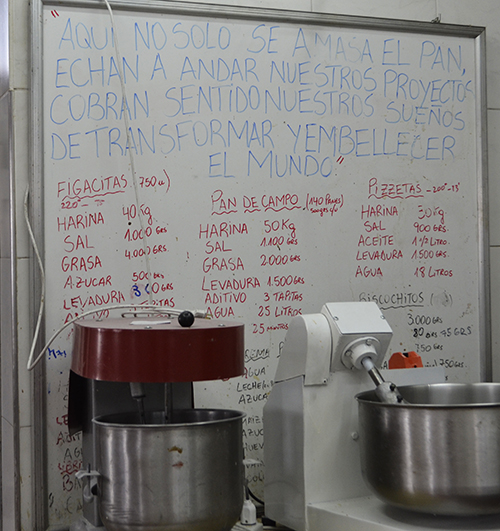 AQUÍ NO SOLO SE AMASA EL PAN,
ECHAN A ANDAR NUESTROS PROYECTOS
COBRAN SENTIDO NUESTROS SUEÑOS
DE TRANSFORMAR Y EMBELLECER
EL MUNDO"
FIGACITAS (750 u)
220°
HARINA 40 Kg
SAL 1.000 GRS
GRASA 4.000 GRS
AZUCAR 500 GRS
LEVADURA
PAN DE CAMPO (140 PANES)
HARINA 50 Kg
SAL 1.100 GRS
GRASA 2000 GRS
LEVADURA 1.500 GRS
ADITIVO 3 TAPITAS
AGUA 25 LITROS
25 MINUTOS
LECHE
AZUCAR
PIZZETAS -200°-13'
HARINA 30 Kg
SAL 900 GRS
ACEITE 1 1/2 LITRO
LEVADURA 1500 GRS
AGUA 18 LITROS
BISCOCHITOS
3000 GRS
75 GRS
750 GRS